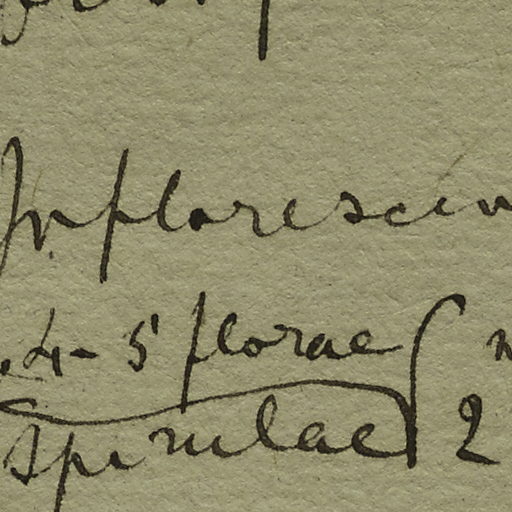 Inflorescen
4-5 florae
spirulae 2